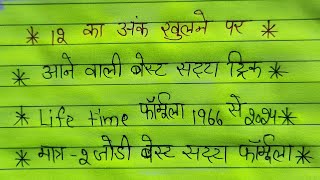 * 12 का अंक खुलने पर *
* आने वाली बेस्ट सट्टा ट्रिक *
* Life time फॉर्मूला 1966 से 2024 *
* मात्र-2 जोडी बेस्ट सट्टा फॉर्मूला *